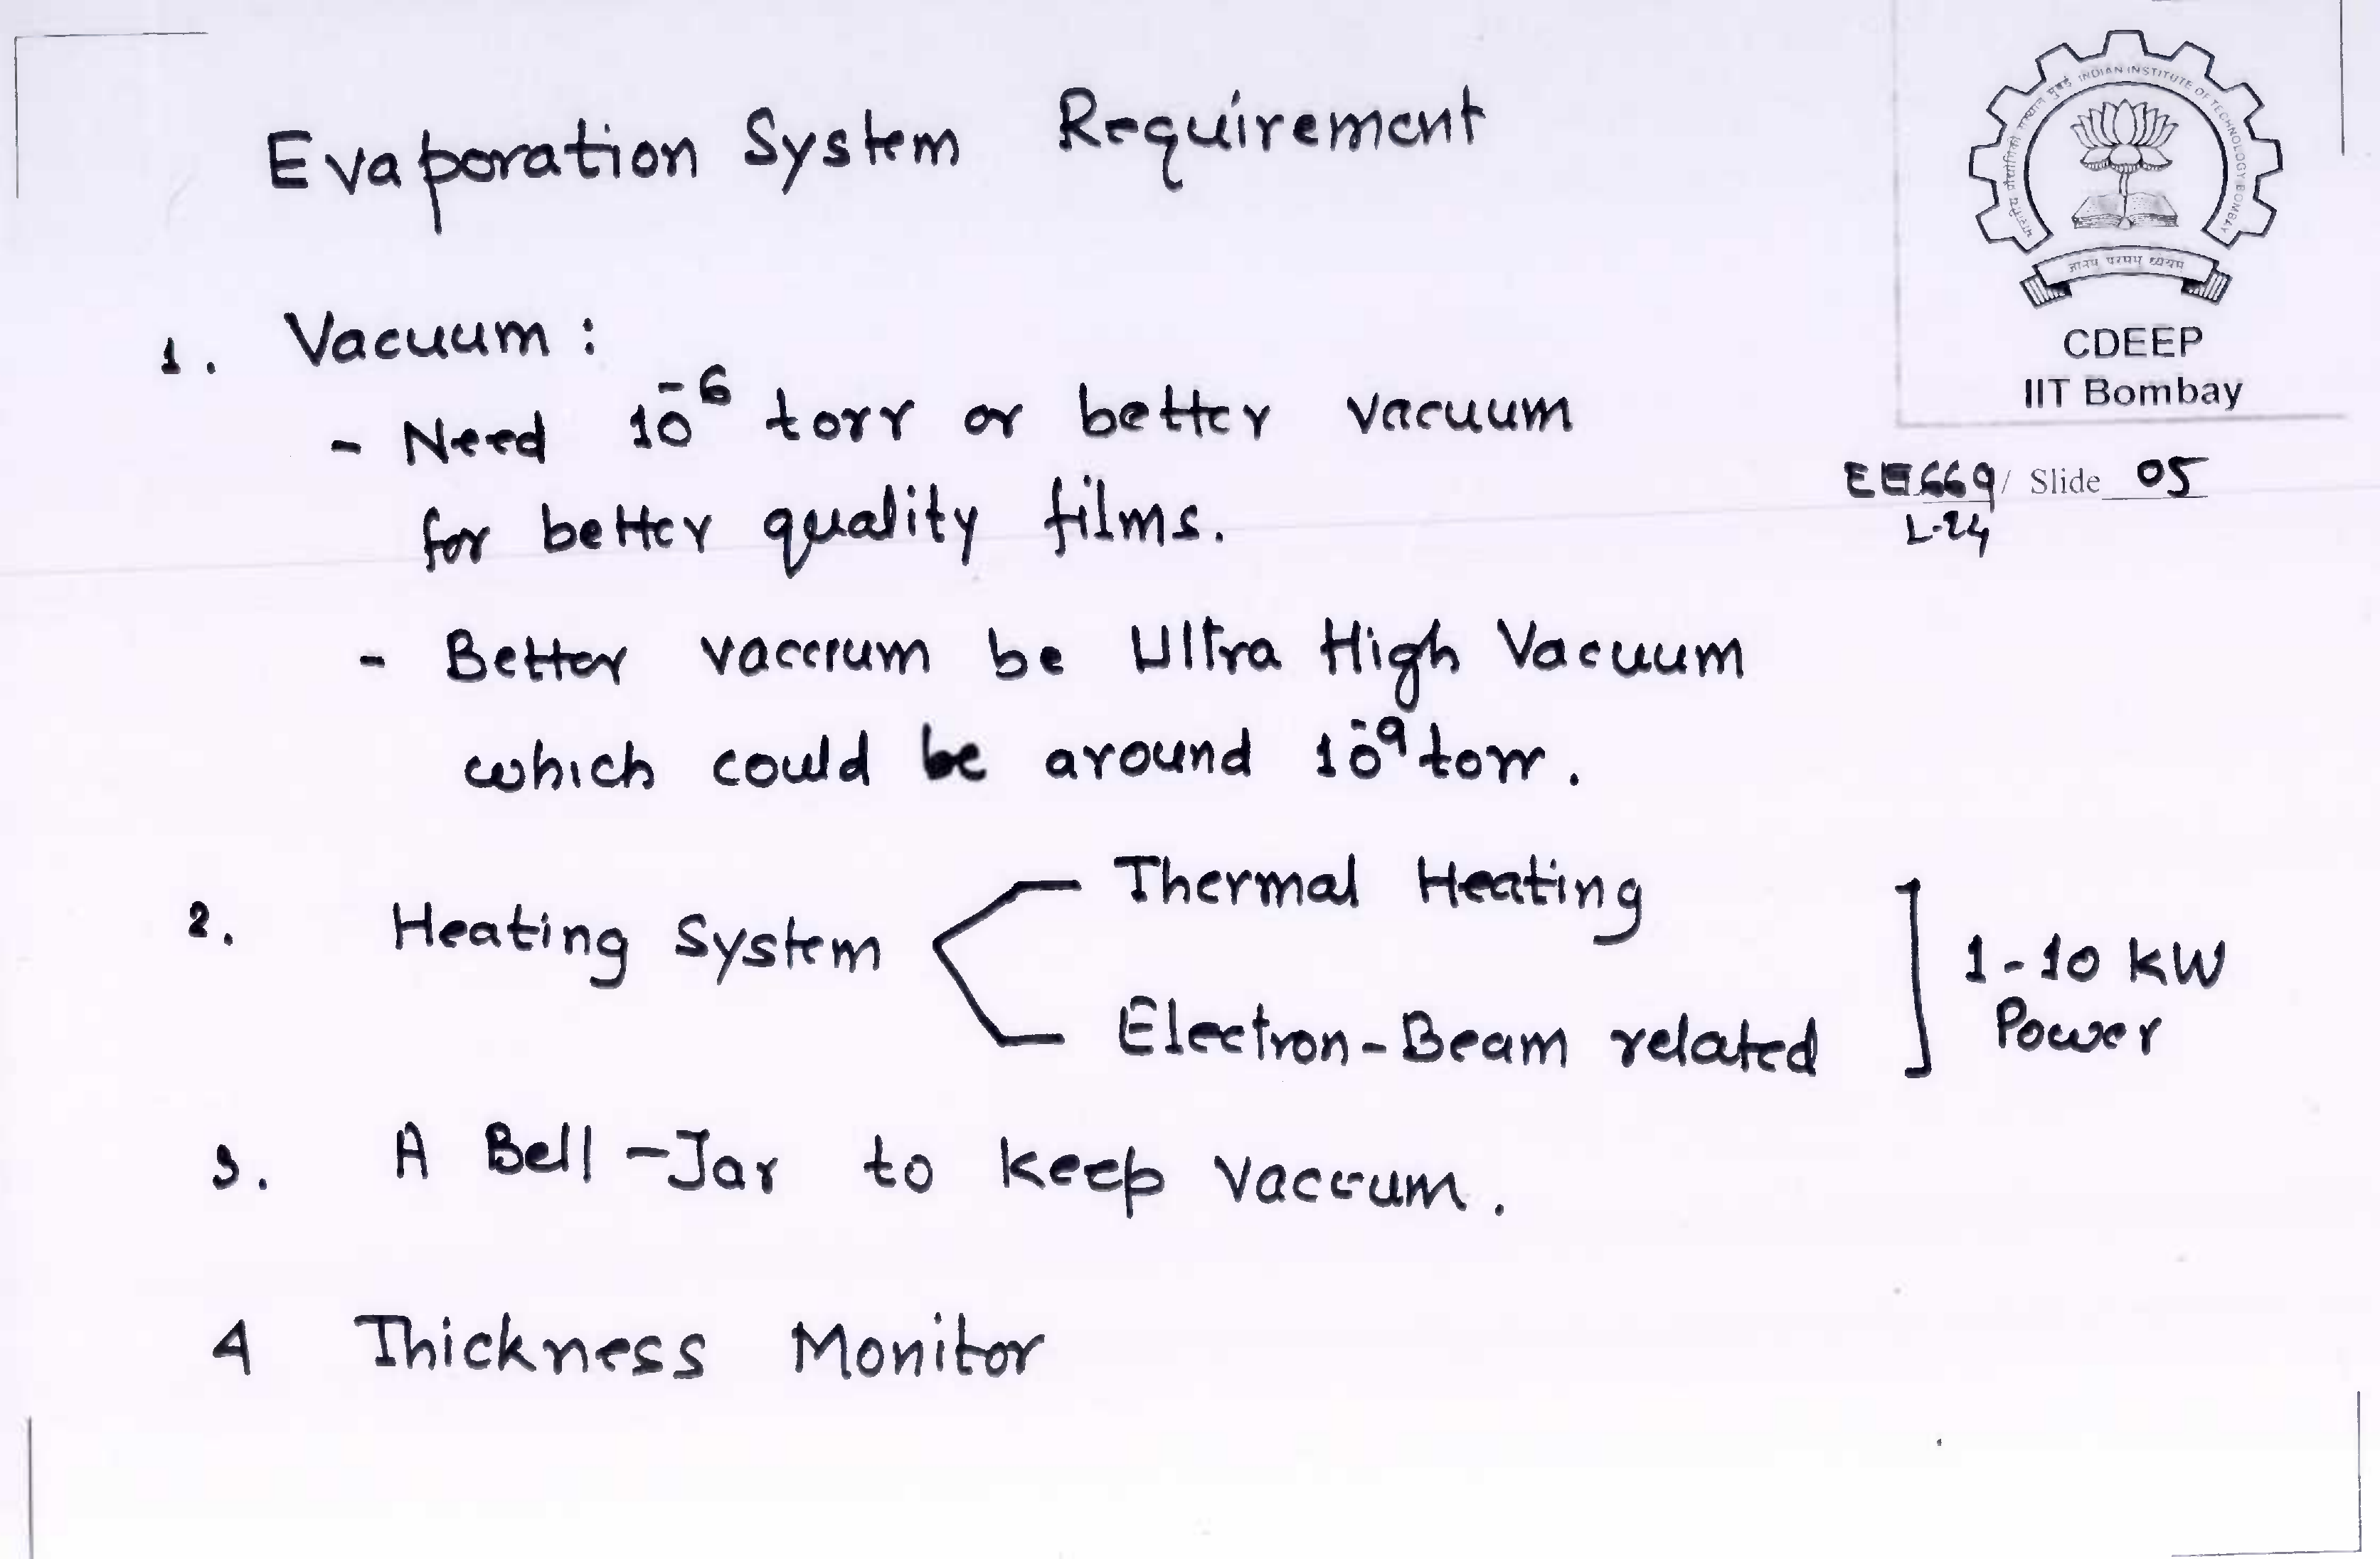 Evaporation System Requirement
INDIAN INSTITUTE OF TECHNOLOGY BOMBAY
CDEEP
IIT Bombay
EE669/ Slide 05
L-24
1. Vacuum :
- Need 10^-6 torr or better vacuum
for better quality films.
- Better vaccum be Ultra High Vacuum
which could be around 10^-9 torr.
2. Heating System
Thermal Heating
Electron-Beam related
1-10 KW
Power
3. A Bell-Jar to keep vaccum.
4 Thickness Monitor